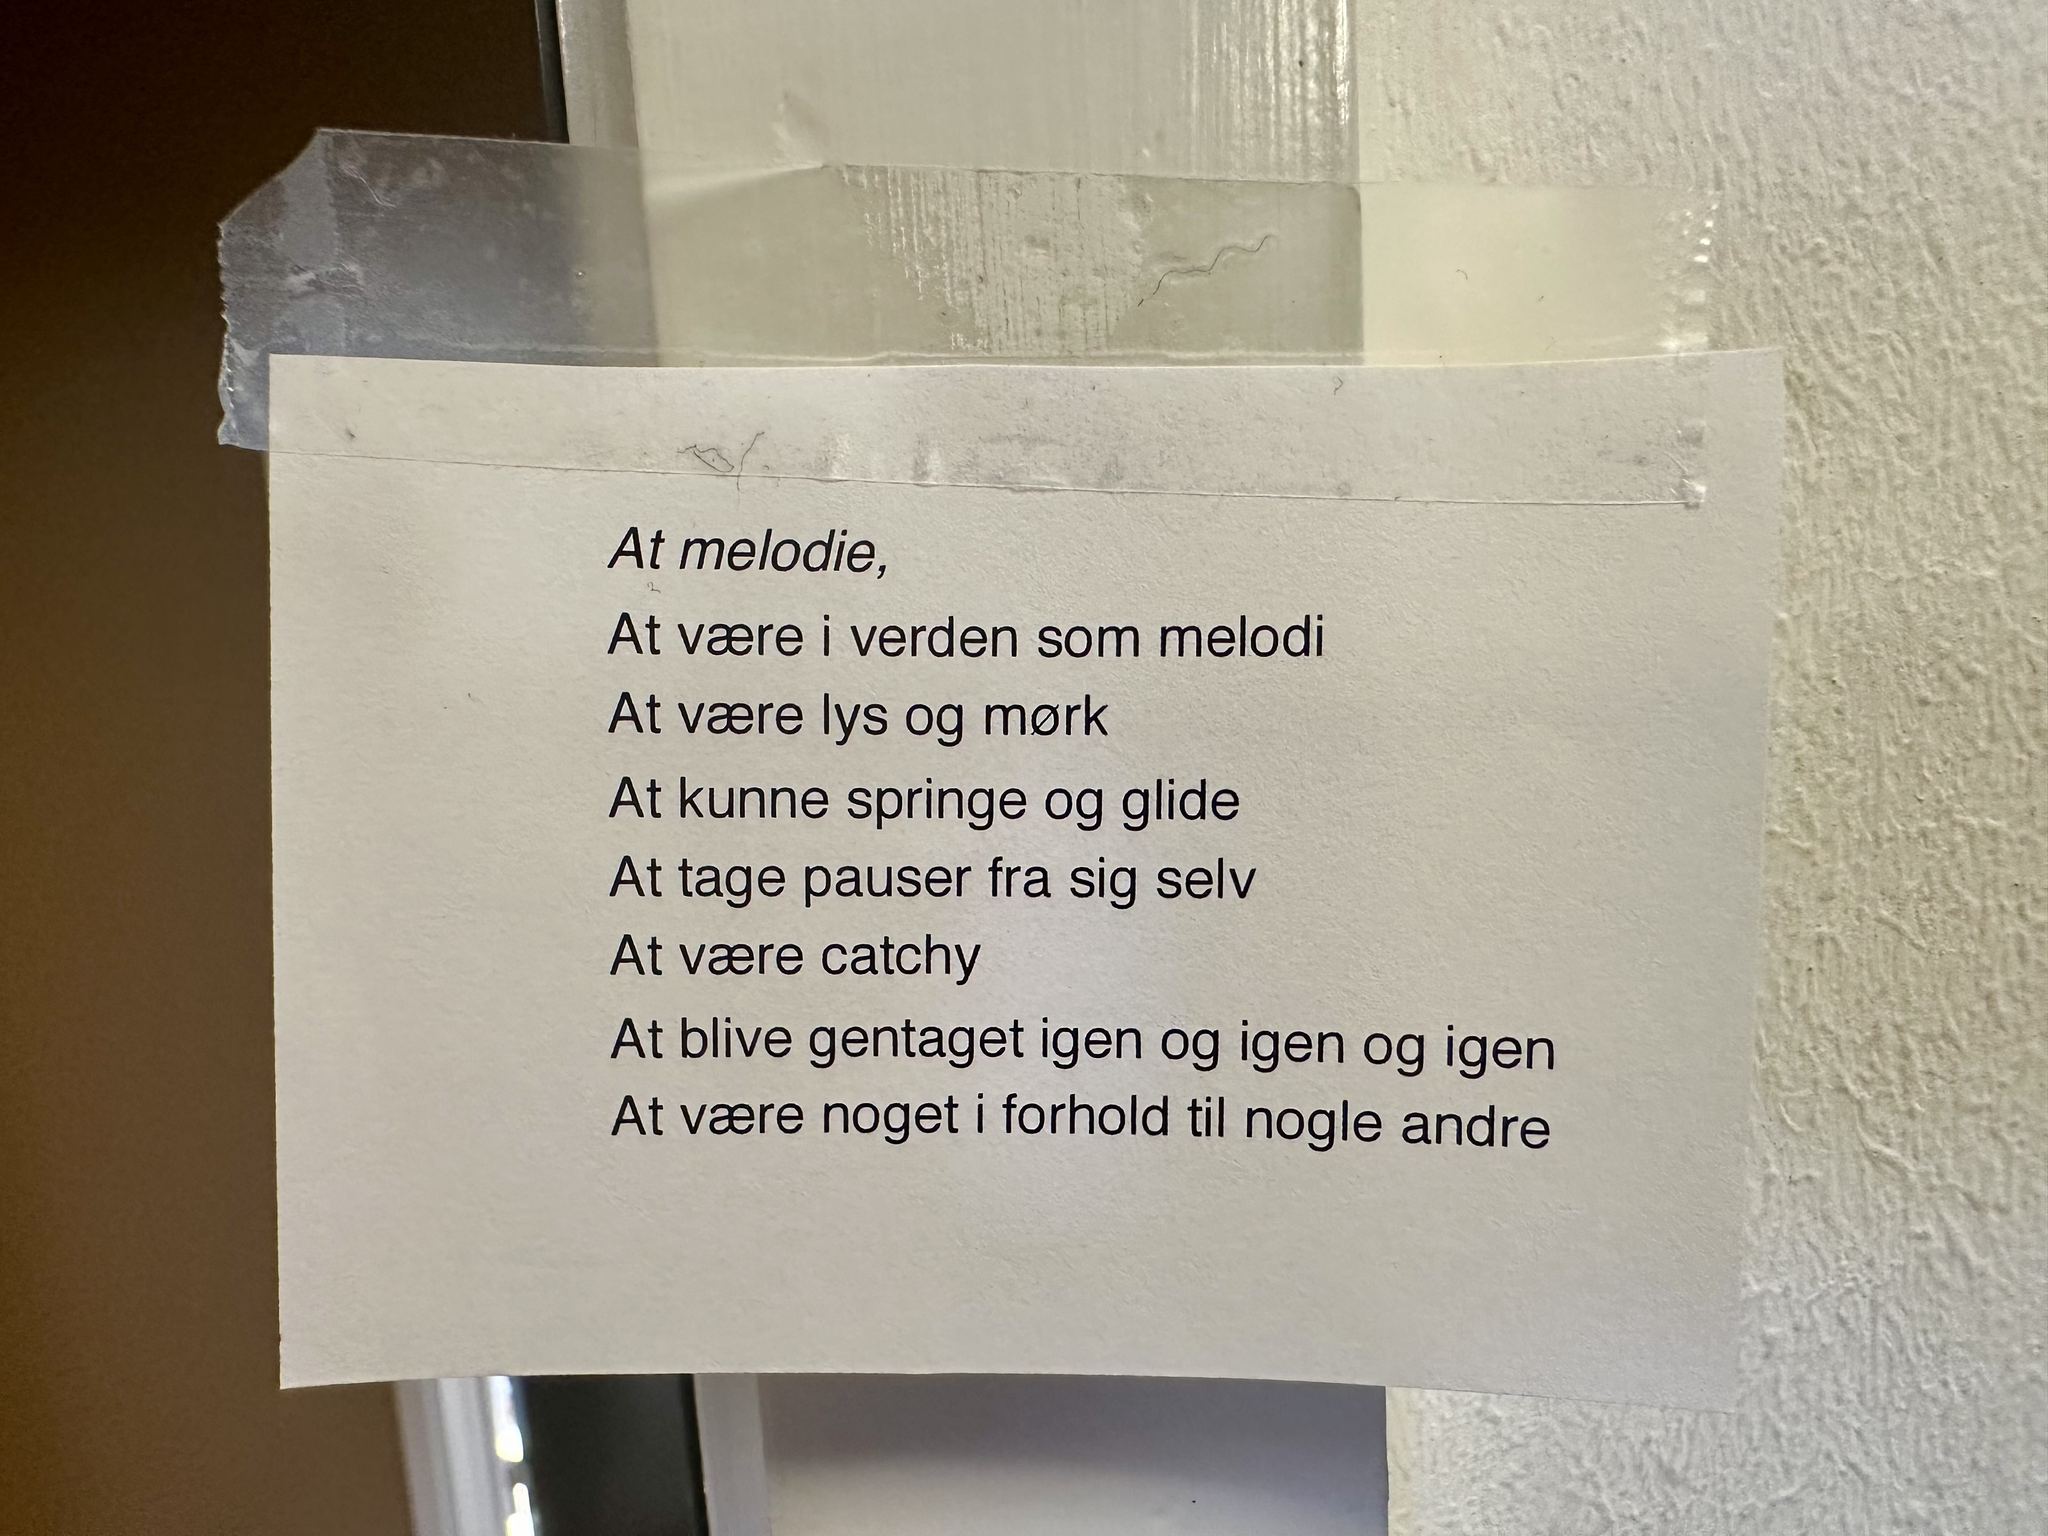 At melodie,
At være i verden som melodi
At være lys og mørk
At kunne springe og glide
At tage pauser fra sig selv
At være catchy
At blive gentaget igen og igen og igen
At være noget i forhold til nogle andre